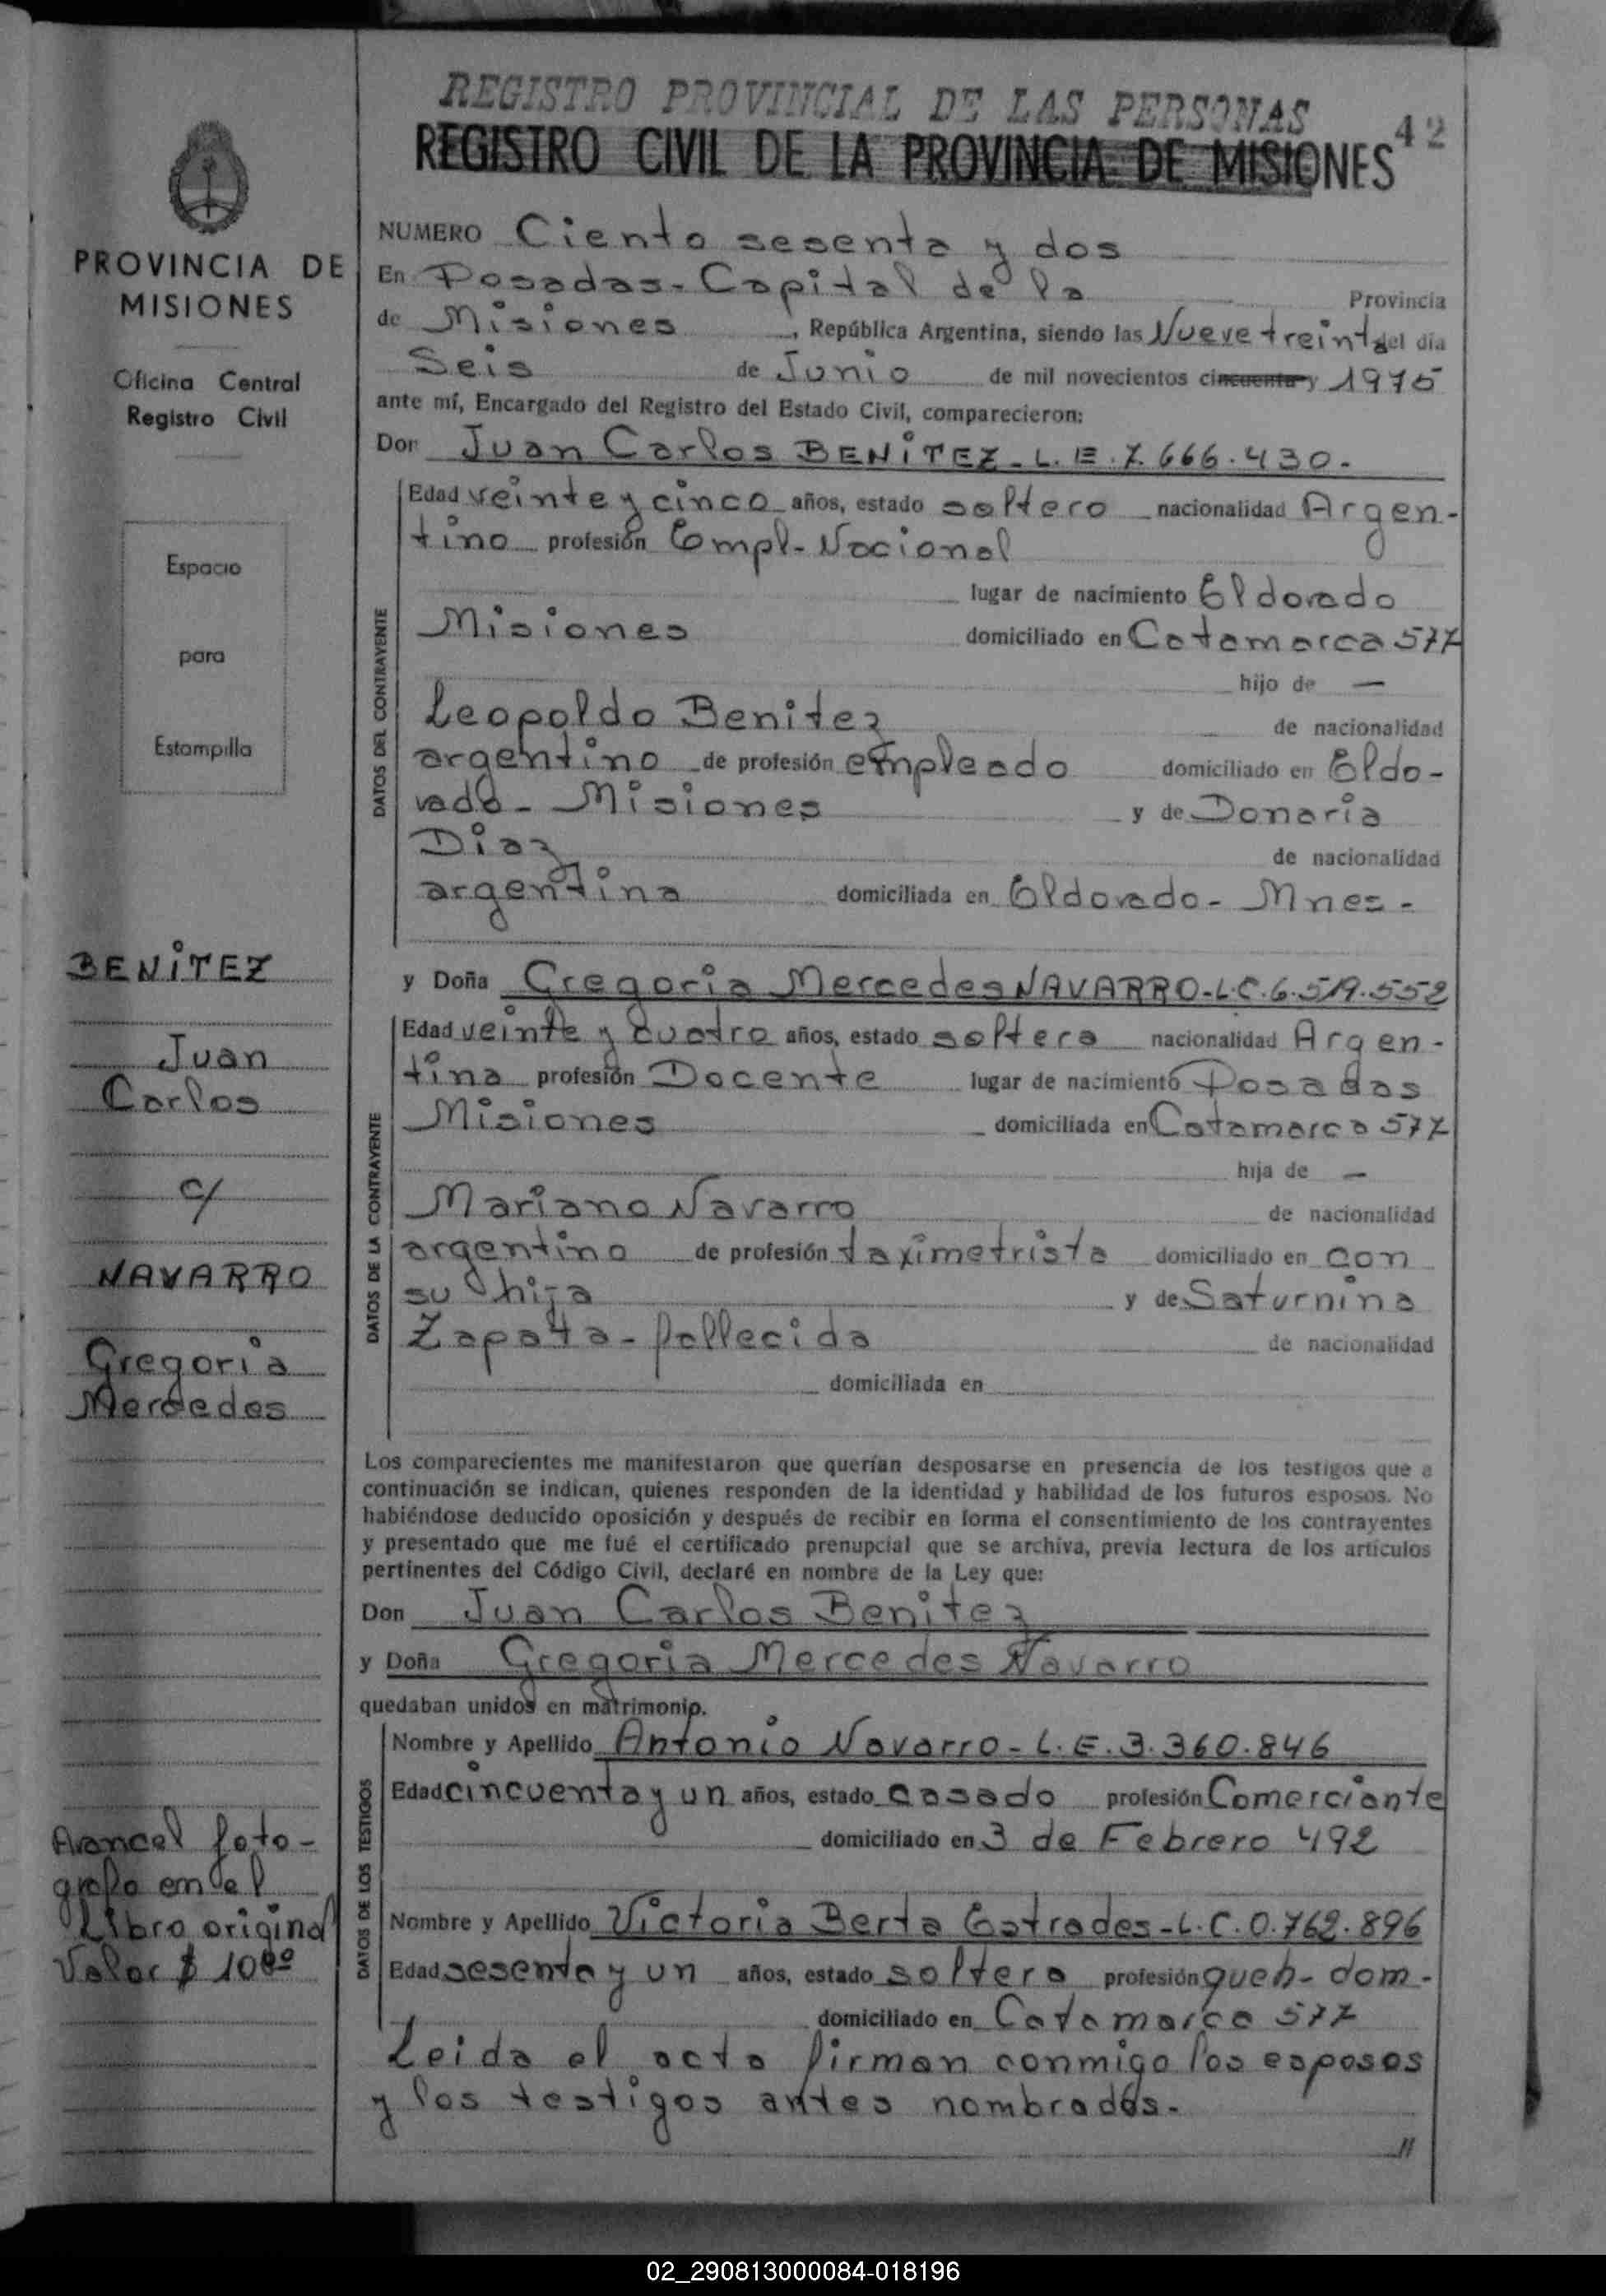 REGISTRO PROVINCIAL DE LAS PERSONAS
REGISTRO CIVIL DE LA PROVINCIA DE MISIONES
42
PROVINCIA DE
MISIONES
Oficina Central
Registro Civil
Espacio
para
Estampilla
BENiTEZ
Juan
Carlos
c/
NAVARRO
Gregoria
Mercedes
Arancel foto-
grafo en el
Libro original
Valor $ 10000
NUMERO Ciento sesenta y dos
En Posadas - Capital de la Provincia
de Misiones, República Argentina, siendo las Nueve treinta del día
Seis de Junio de mil novecientos cincuenta y 1975
ante mí, Encargado del Registro del Estado Civil, comparecieron:
Don Juan Carlos BENiTEZ - L.E. 7.666.430.-
DATOS DEL CONTRAYENTE
Edad veinte y cinco años, estado soltero nacionalidad Argen-
tino profesión Empl- Nacional
lugar de nacimiento Eldorado
Misiones domiciliado en Catamarca 577
hijo de —
Leopoldo Benitez de nacionalidad
argentino de profesión empleado domiciliado en Eldo-
rado - Misiones y de Donaria
Diaz de nacionalidad
argentina domiciliada en Eldorado - Mnes -
y Doña Gregoria Mercedes NAVARRO - L.C. 6.519.552
DATOS DE LA CONTRAYENTE
Edad veinte y cuatro años, estado soltera nacionalidad Argen-
tina profesión Docente lugar de nacimiento Posadas
Misiones domiciliada en Catamarca 577
hija de —
Mariano Navarro de nacionalidad
argentino de profesión taximetrista domiciliado en con
su hija y de Saturnina
Zapata - fallecida de nacionalidad
domiciliada en
Los comparecientes me manifestaron que querían desposarse en presencia de los testigos que a
continuación se indican, quienes responden de la identidad y habilidad de los futuros esposos. No
habiéndose deducido oposición y después de recibir en forma el consentimiento de los contrayentes
y presentado que me fué el certificado prenupcial que se archiva, previa lectura de los artículos
pertinentes del Código Civil, declaré en nombre de la Ley que:
Don Juan Carlos Benitez
y Doña Gregoria Mercedes Navarro
quedaban unidos en matrimonio.
DATOS DE LOS TESTIGOS
Nombre y Apellido Antonio Navarro - L.E. 3.360.846
Edad cincuenta y un años, estado casado profesión Comerciante
domiciliado en 3 de Febrero 492
Nombre y Apellido Victoria Berta Estrades - L.C. 0.762.896
Edad sesenta y un años, estado soltera profesión queh- dom-
domiciliado en Catamarca 577
Leida el acta firman conmigo los esposos
y los testigos antes nombrados.-
//
02_290813000084-018196